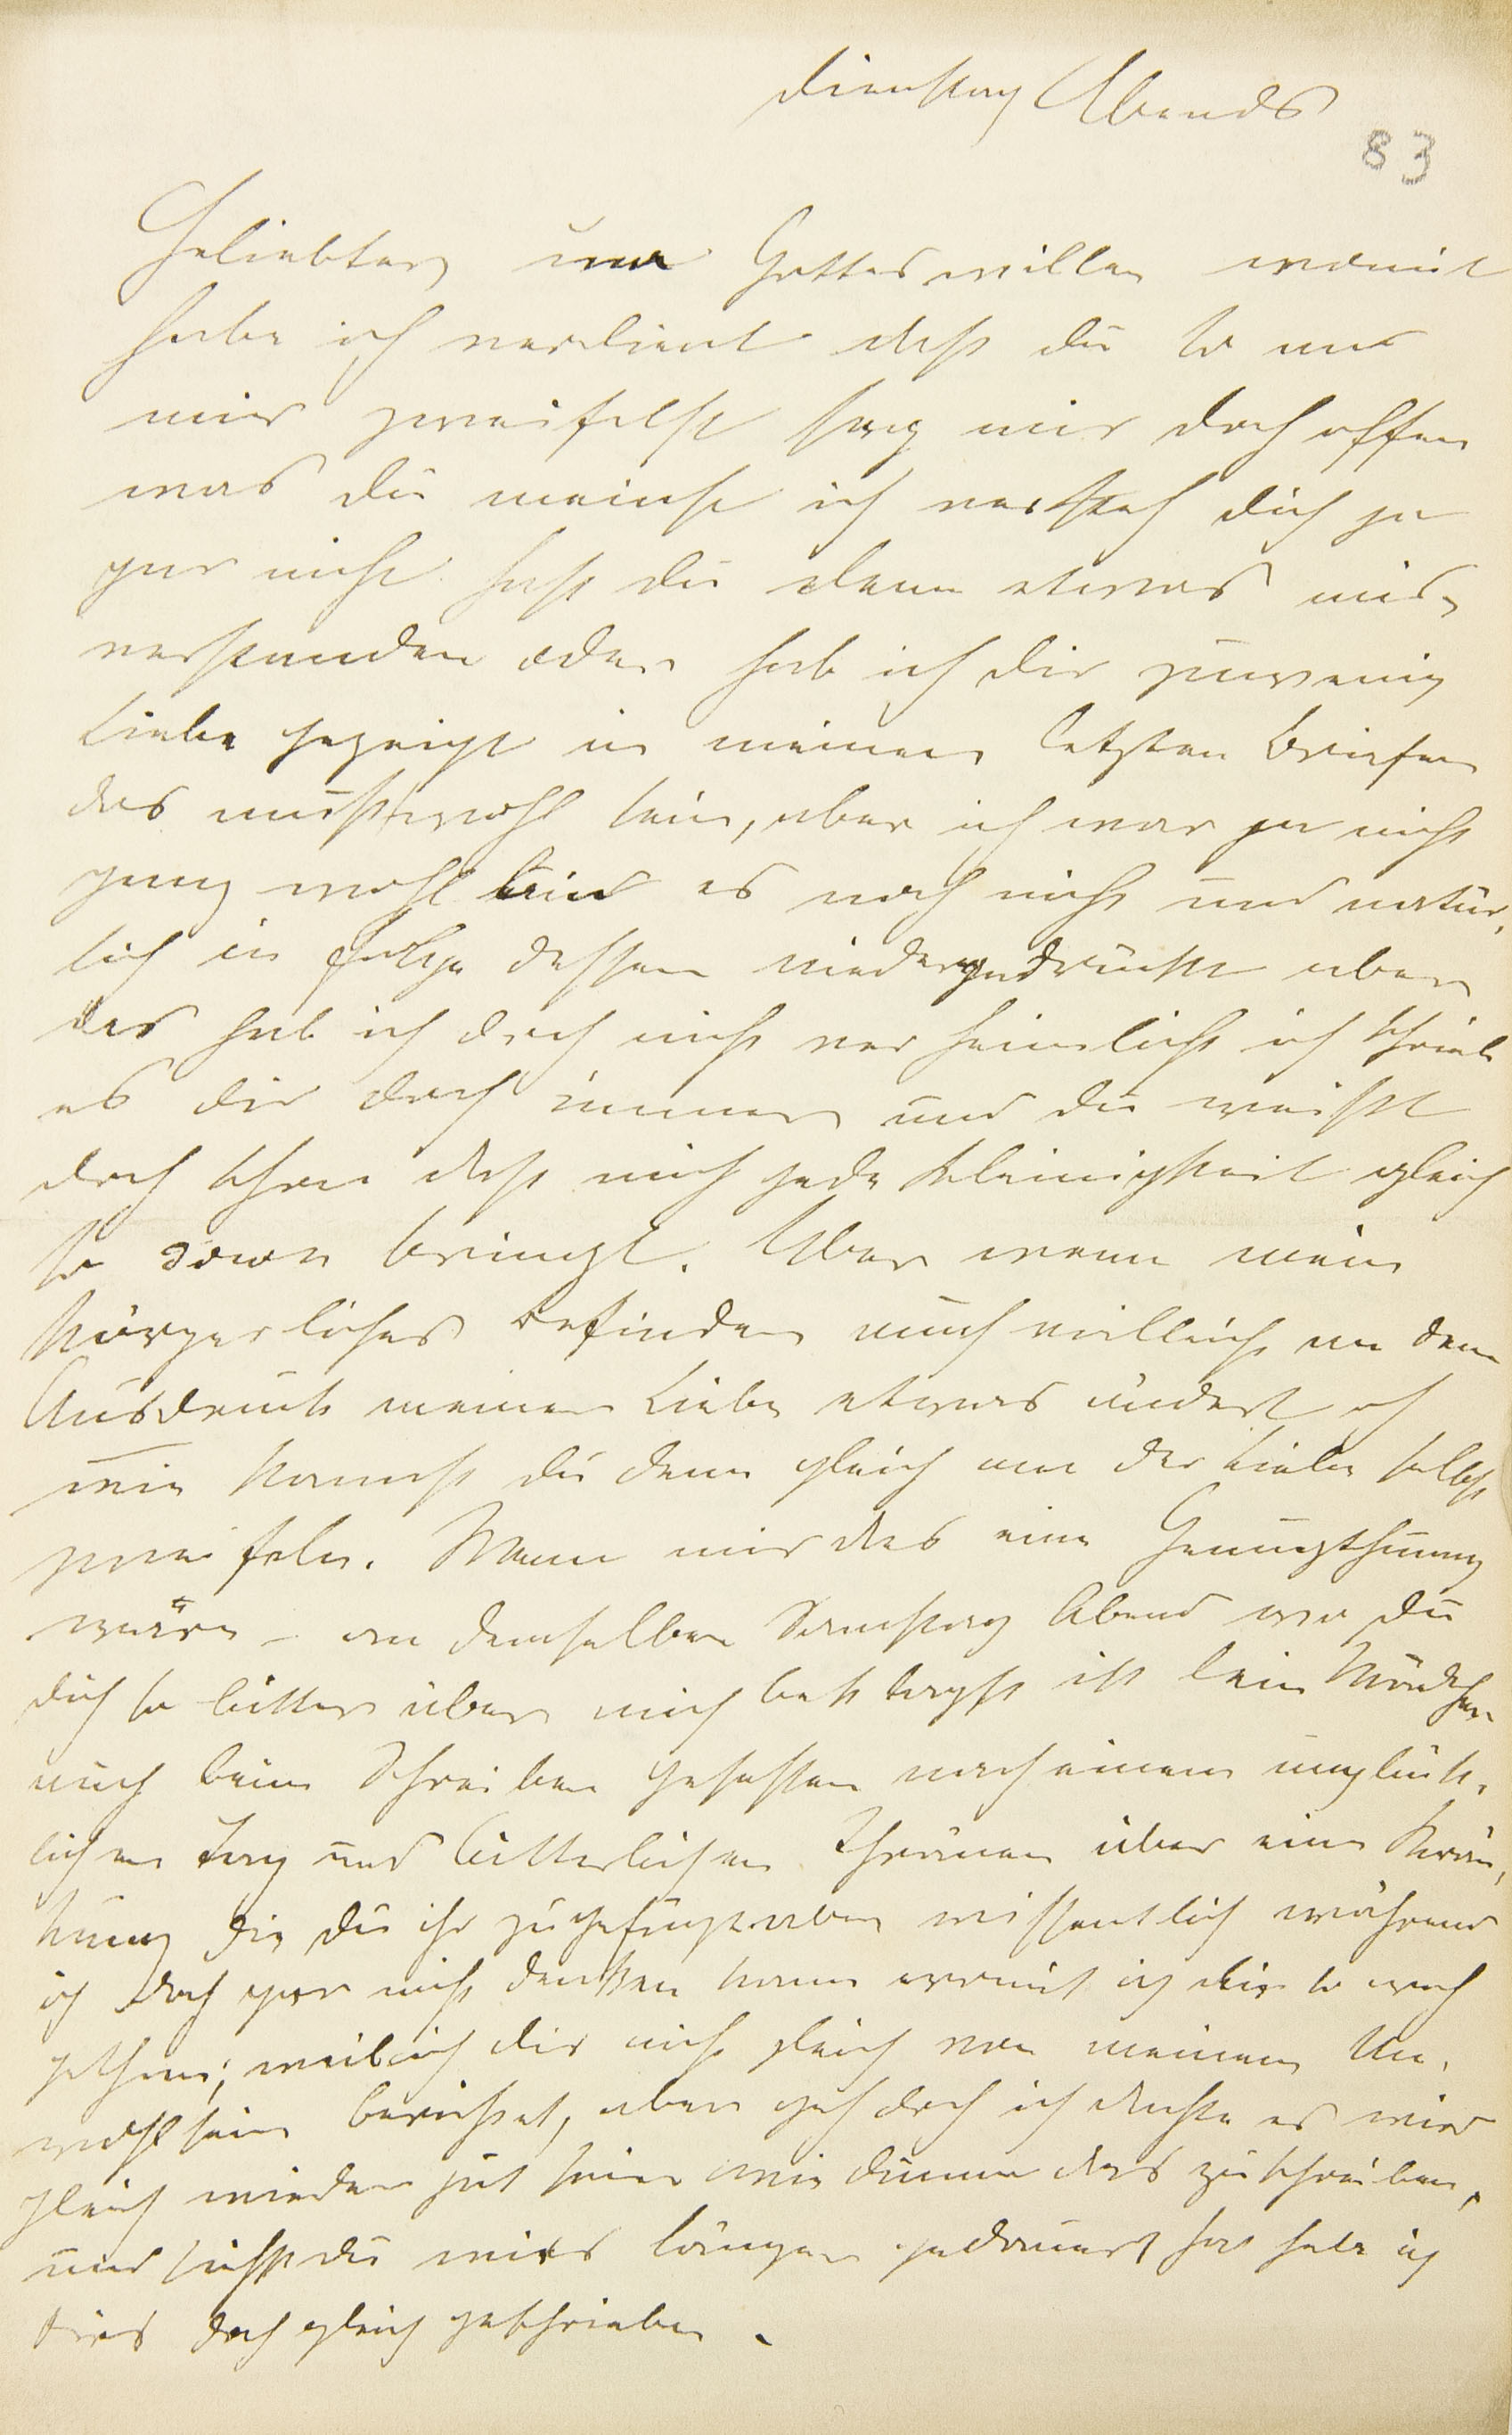 Dienstag Abends
83
Geliebter um Gottes willen womit
habe ich verdient daß du so an
mir zweifelst sag mir doch offen
was du meinst ich versteh dich ja
gar nicht hast du denn etwas mis-
verstanden oder hab ich dir zuwenig
Liebe gezeigt in meinen letzten Briefen
das muß wohl sein, aber ich war ja nicht
ganz wohl bin es noch nicht und natür-
lich in Folge dessen niedergedrückt aber
das hab ich doch nicht verheimlicht ich schrieb
es dir doch immer und du weißt
doch schon daß mich jede Kleinigkeit gleich
so down bringt. Aber wenn mein
körperliches Befinden auch villeicht an dem
Ausdruck meiner Liebe etwas ändert o
wie kannst du denn gleich an der Liebe selbst
zweifeln. Wenn mir das eine Genugthuung
wäre – an demselben Samstag Abend wo du
dich so bitter über mich beklagst ist dein Mädchen
auch beim Schreiben gesessen nach einem unglück-
lichen Tag und bitterlichen Thränen über eine Krän-
kung die du ihr zugefügt aber wissentlich während
ich doch gar nicht denken kann womit ich dir so weh
gethan; weil ich dir nicht gleich von meinem Un-
wohlsein berichtet, aber geh doch ich dachte es wird
gleich wieder gut sein wie dumm das zu schreiben,
und siehst du wies länger gedauert hat hab ich
dirs doch gleich geschrieben.